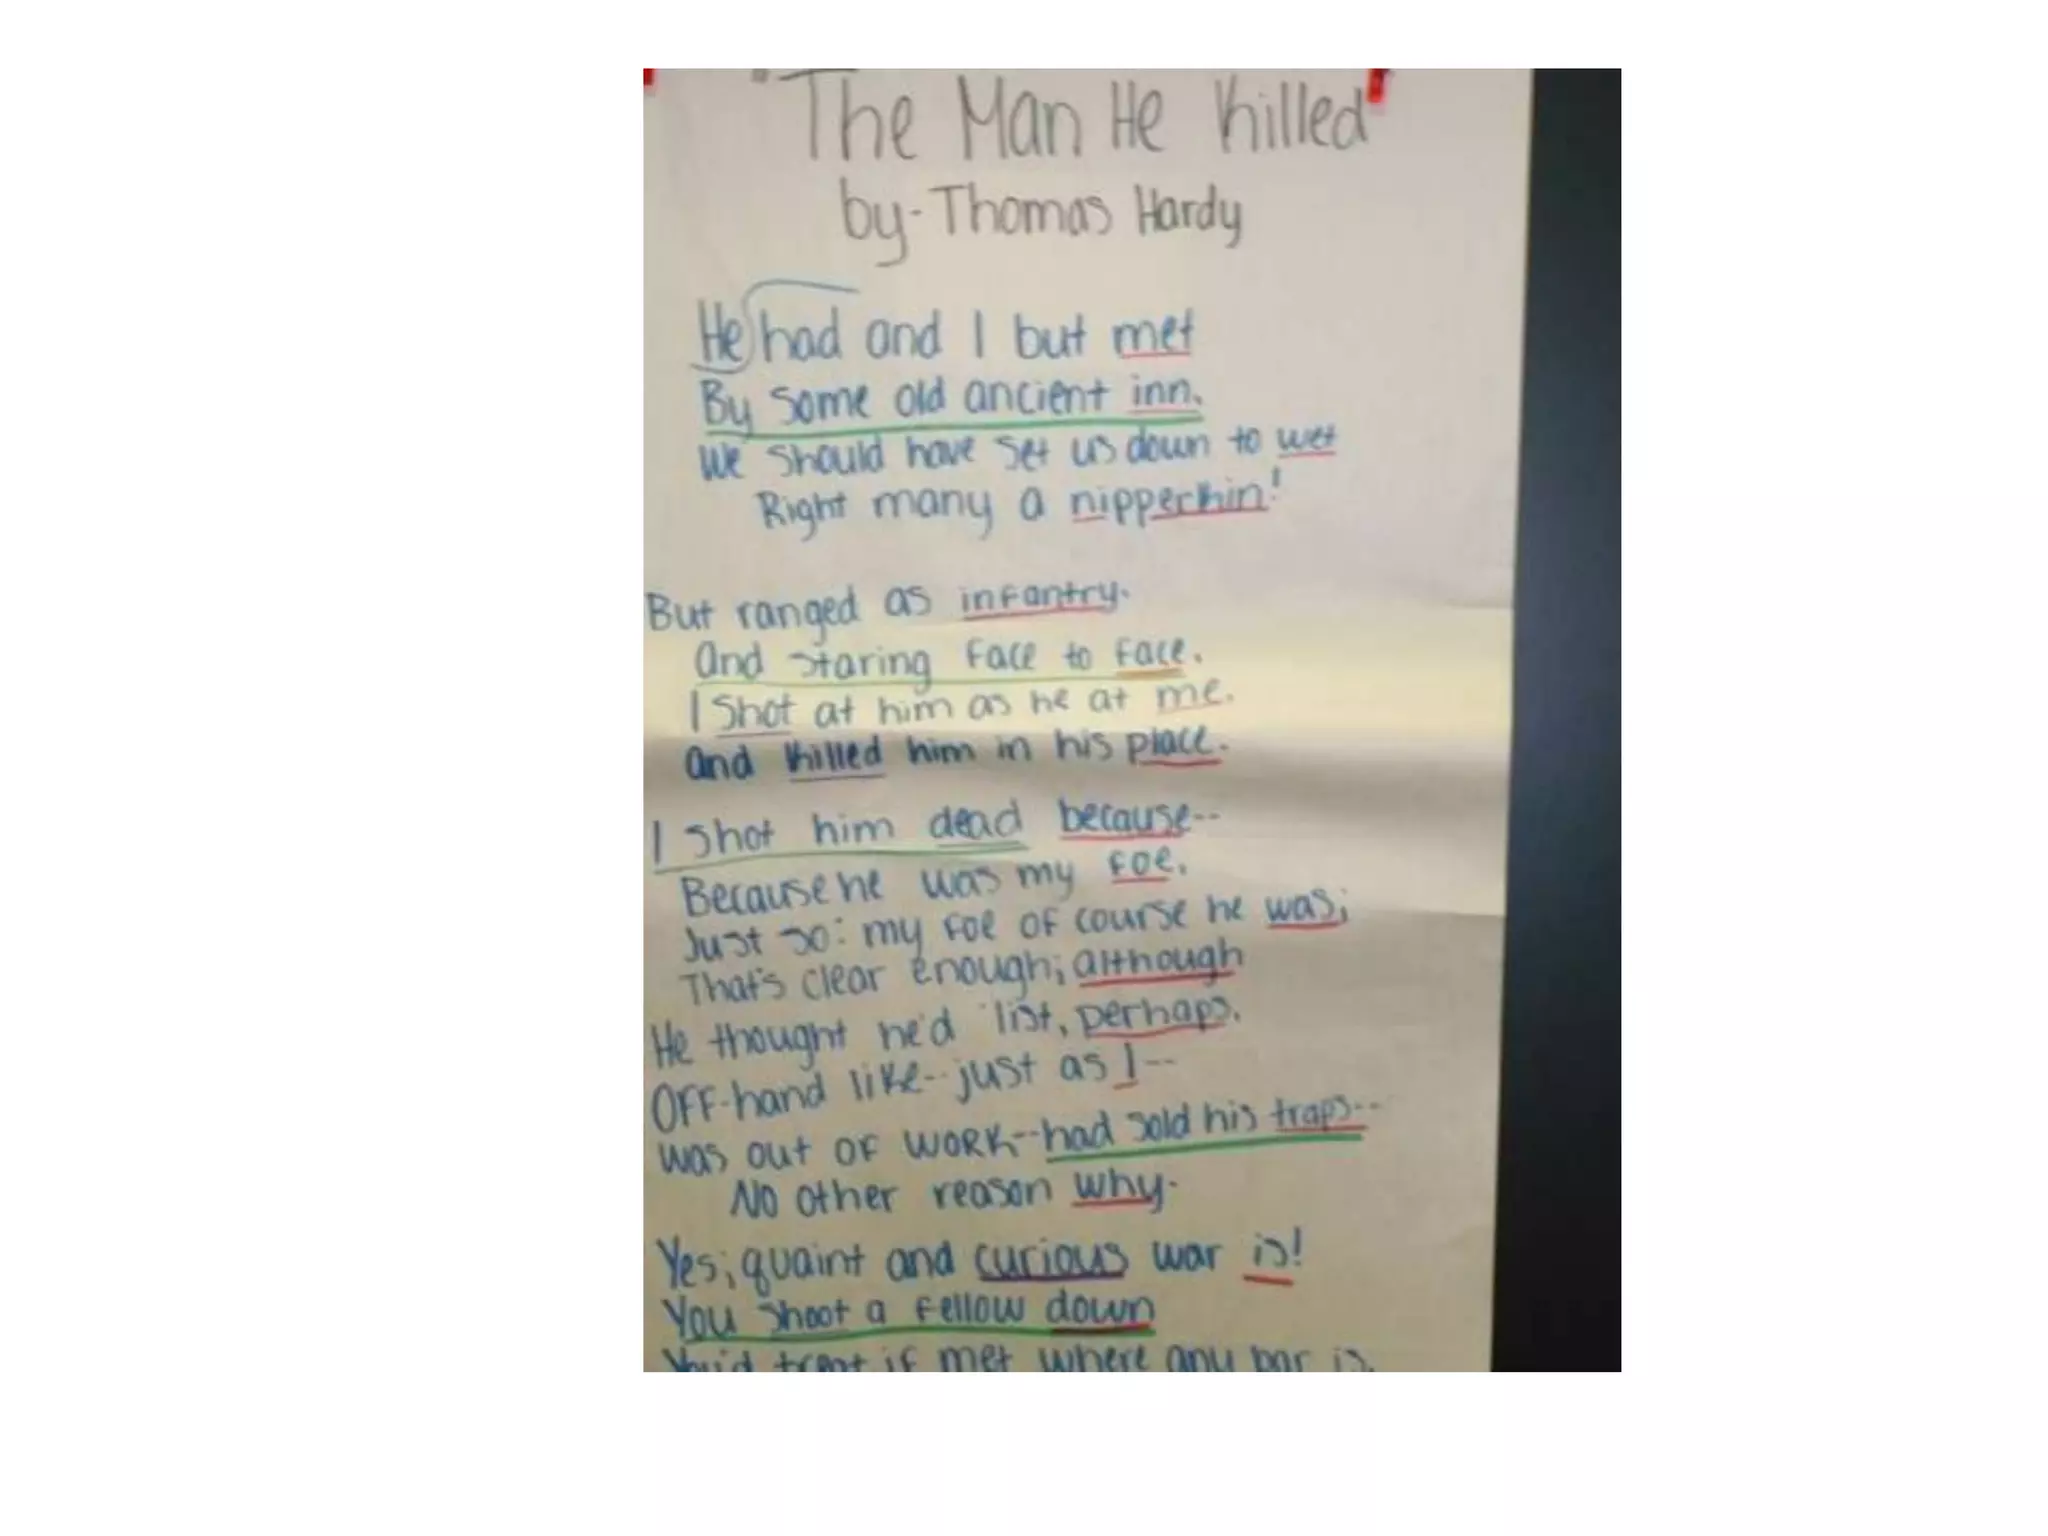 "The Man He Killed"
by-Thomas Hardy
He had and I but met
By some old ancient inn.
We should have set us down to wet
Right many a nipperkin!
But ranged as infantry.
And staring face to face.
I shot at him as he at me.
And killed him in his place.
I shot him dead because--
Because he was my foe.
Just so: my foe of course he was;
That's clear enough; although
He thought he'd 'list, perhaps.
OFF-hand like--just as I--
Was out of work--had sold his traps--
No other reason why.
Yes; quaint and curious war is!
You shoot a fellow down
You'd treat if met where any bar is.